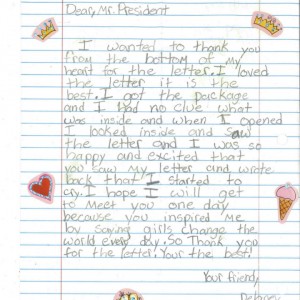 Dear, Mr. President
I wanted to thank you
from the bottom of my
heart for the letter. I loved
the letter it is the
best. I got the package
and I had no clue what
was inside and when I opened
I looked inside and saw
the letter and I was so
happy and excited that
you saw my letter and wrote
back that I started to
cry. I hope I will get
to meet you one day
because you inspired me
by saying girls change the
world every day. So Thank you
for the letter. Your the best!
Your friend,